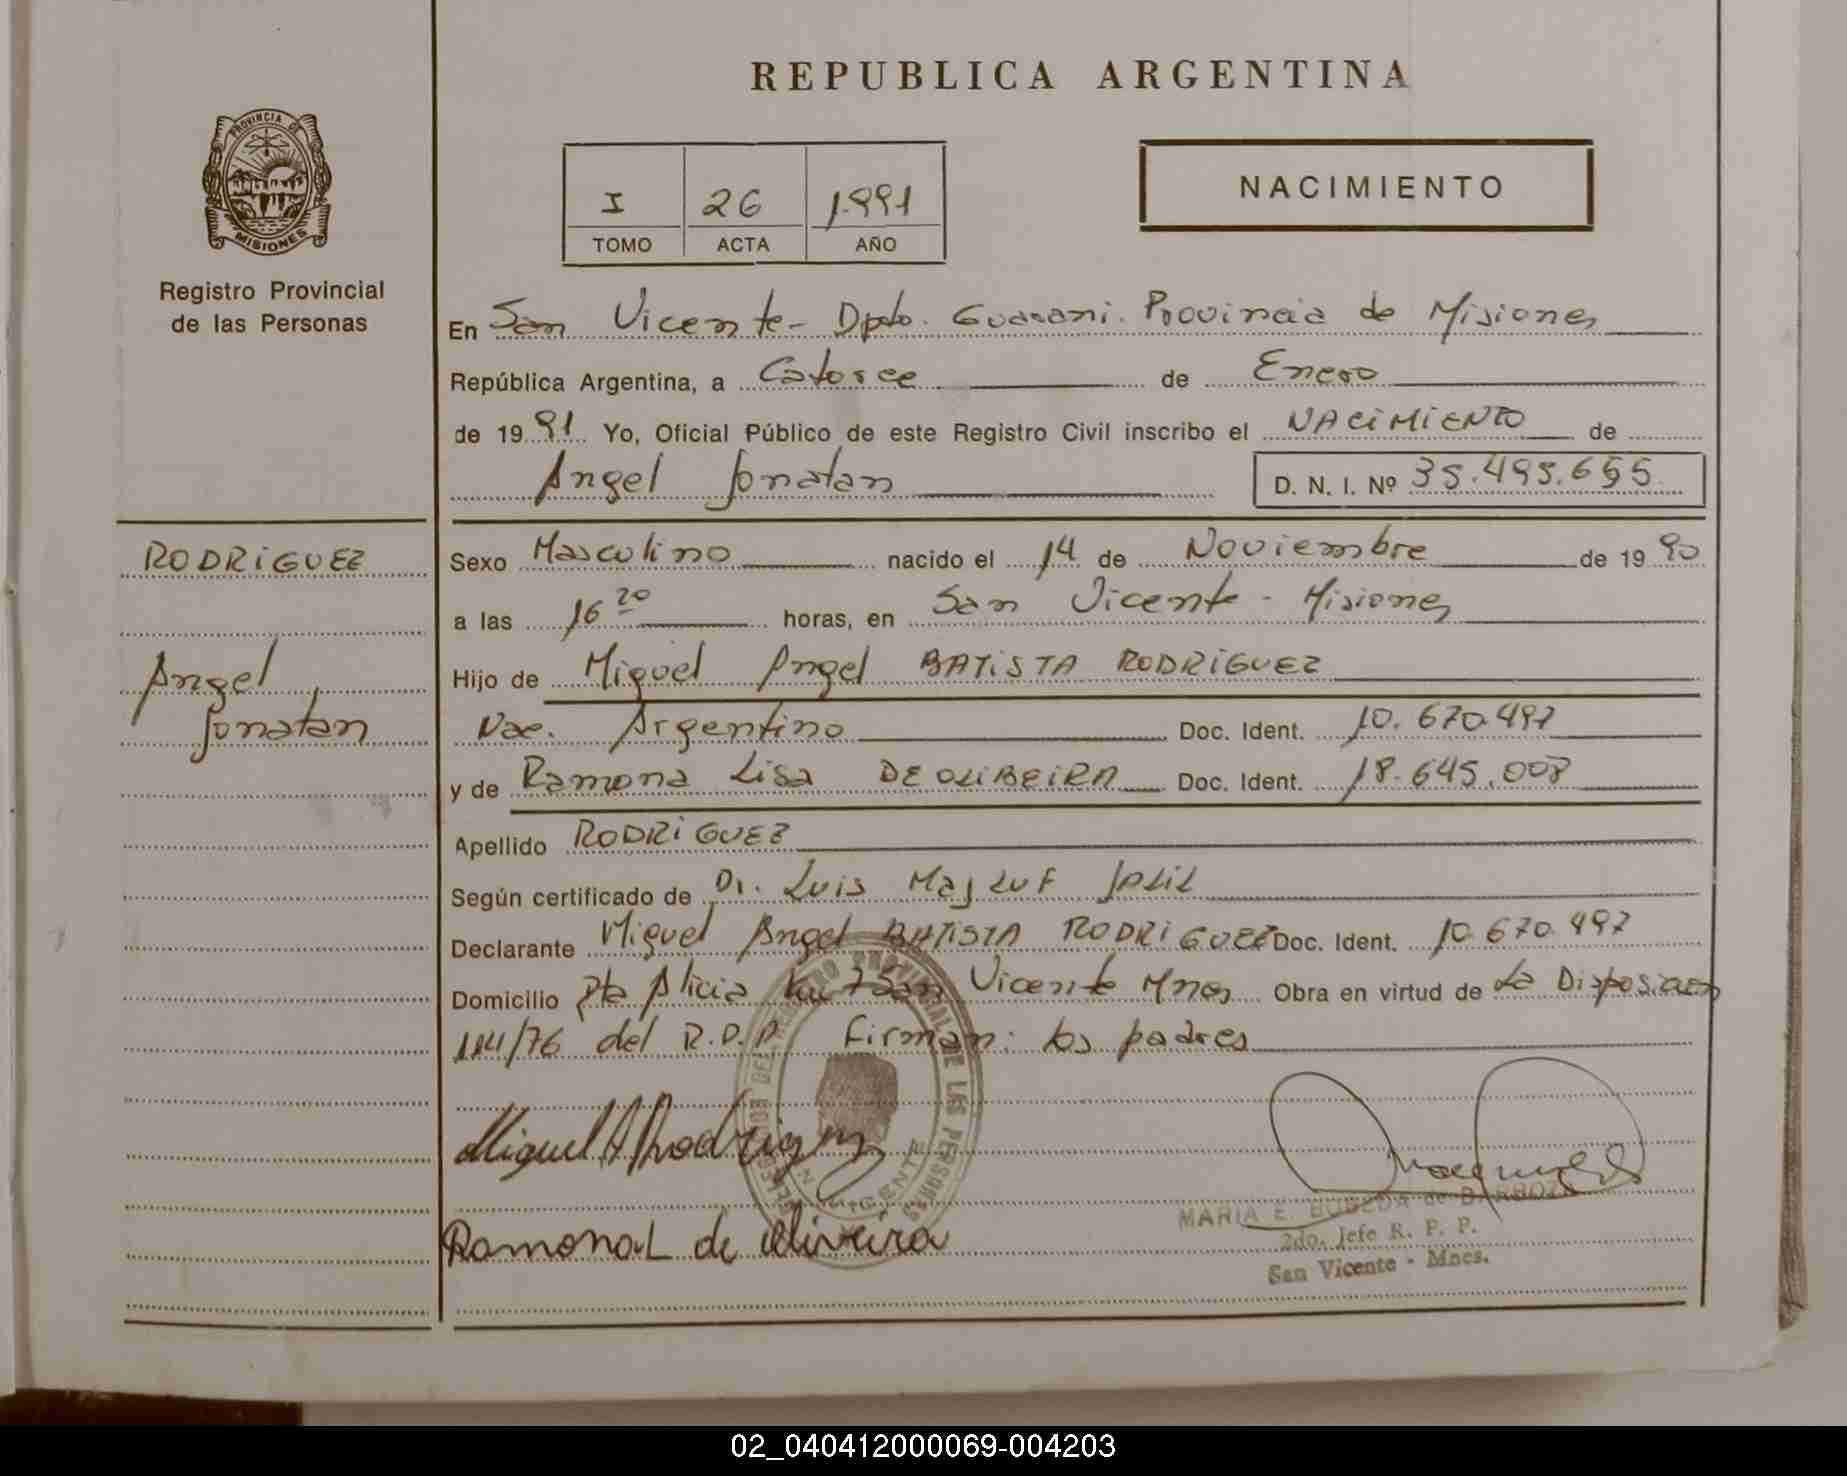 REPUBLICA ARGENTINA
PROVINCIA DE
MISIONES
Registro Provincial
de las Personas
I 26 1.991
TOMO ACTA AÑO
NACIMIENTO
En San Vicente - Dpto. Guarani. Provincia de Misiones
República Argentina, a Catorce de Enero
de 1991 Yo, Oficial Público de este Registro Civil inscribo el NACIMIENTO de
Angel Jonatan D. N. I. Nº 35.495.655
RODRIGUEZ
Angel
Jonatan
Sexo Masculino nacido el 14 de Noviembre de 1990
a las 16 20 horas, en San Vicente - Misiones
Hijo de Miguel Angel BATISTA RODRIGUEZ
Nac. Argentino Doc. Ident. 10.670.497
y de Ramona Lisa DE OLIBEIRA Doc. Ident. 18.645.008
Apellido RODRIGUEZ
Según certificado de Dr. Luis Majluf JALIL
Declarante Miguel Angel BATISTA RODRIGUEZ Doc. Ident. 10.670.497
Domicilio Pto Alicia Km 7 San Vicente Mnes Obra en virtud de La Disposicion
114/76 del R.D.P. Firman: los padres
Miguel A Rodriguez
Ramona L de oliveira
DEL REGISTRO PROVINCIAL DE LAS PERSONAS
VICENTE
MARIA E. de BARBOZA
2do. Jefe R. P. P.
San Vicente - Mnes.
02_040412000069-004203